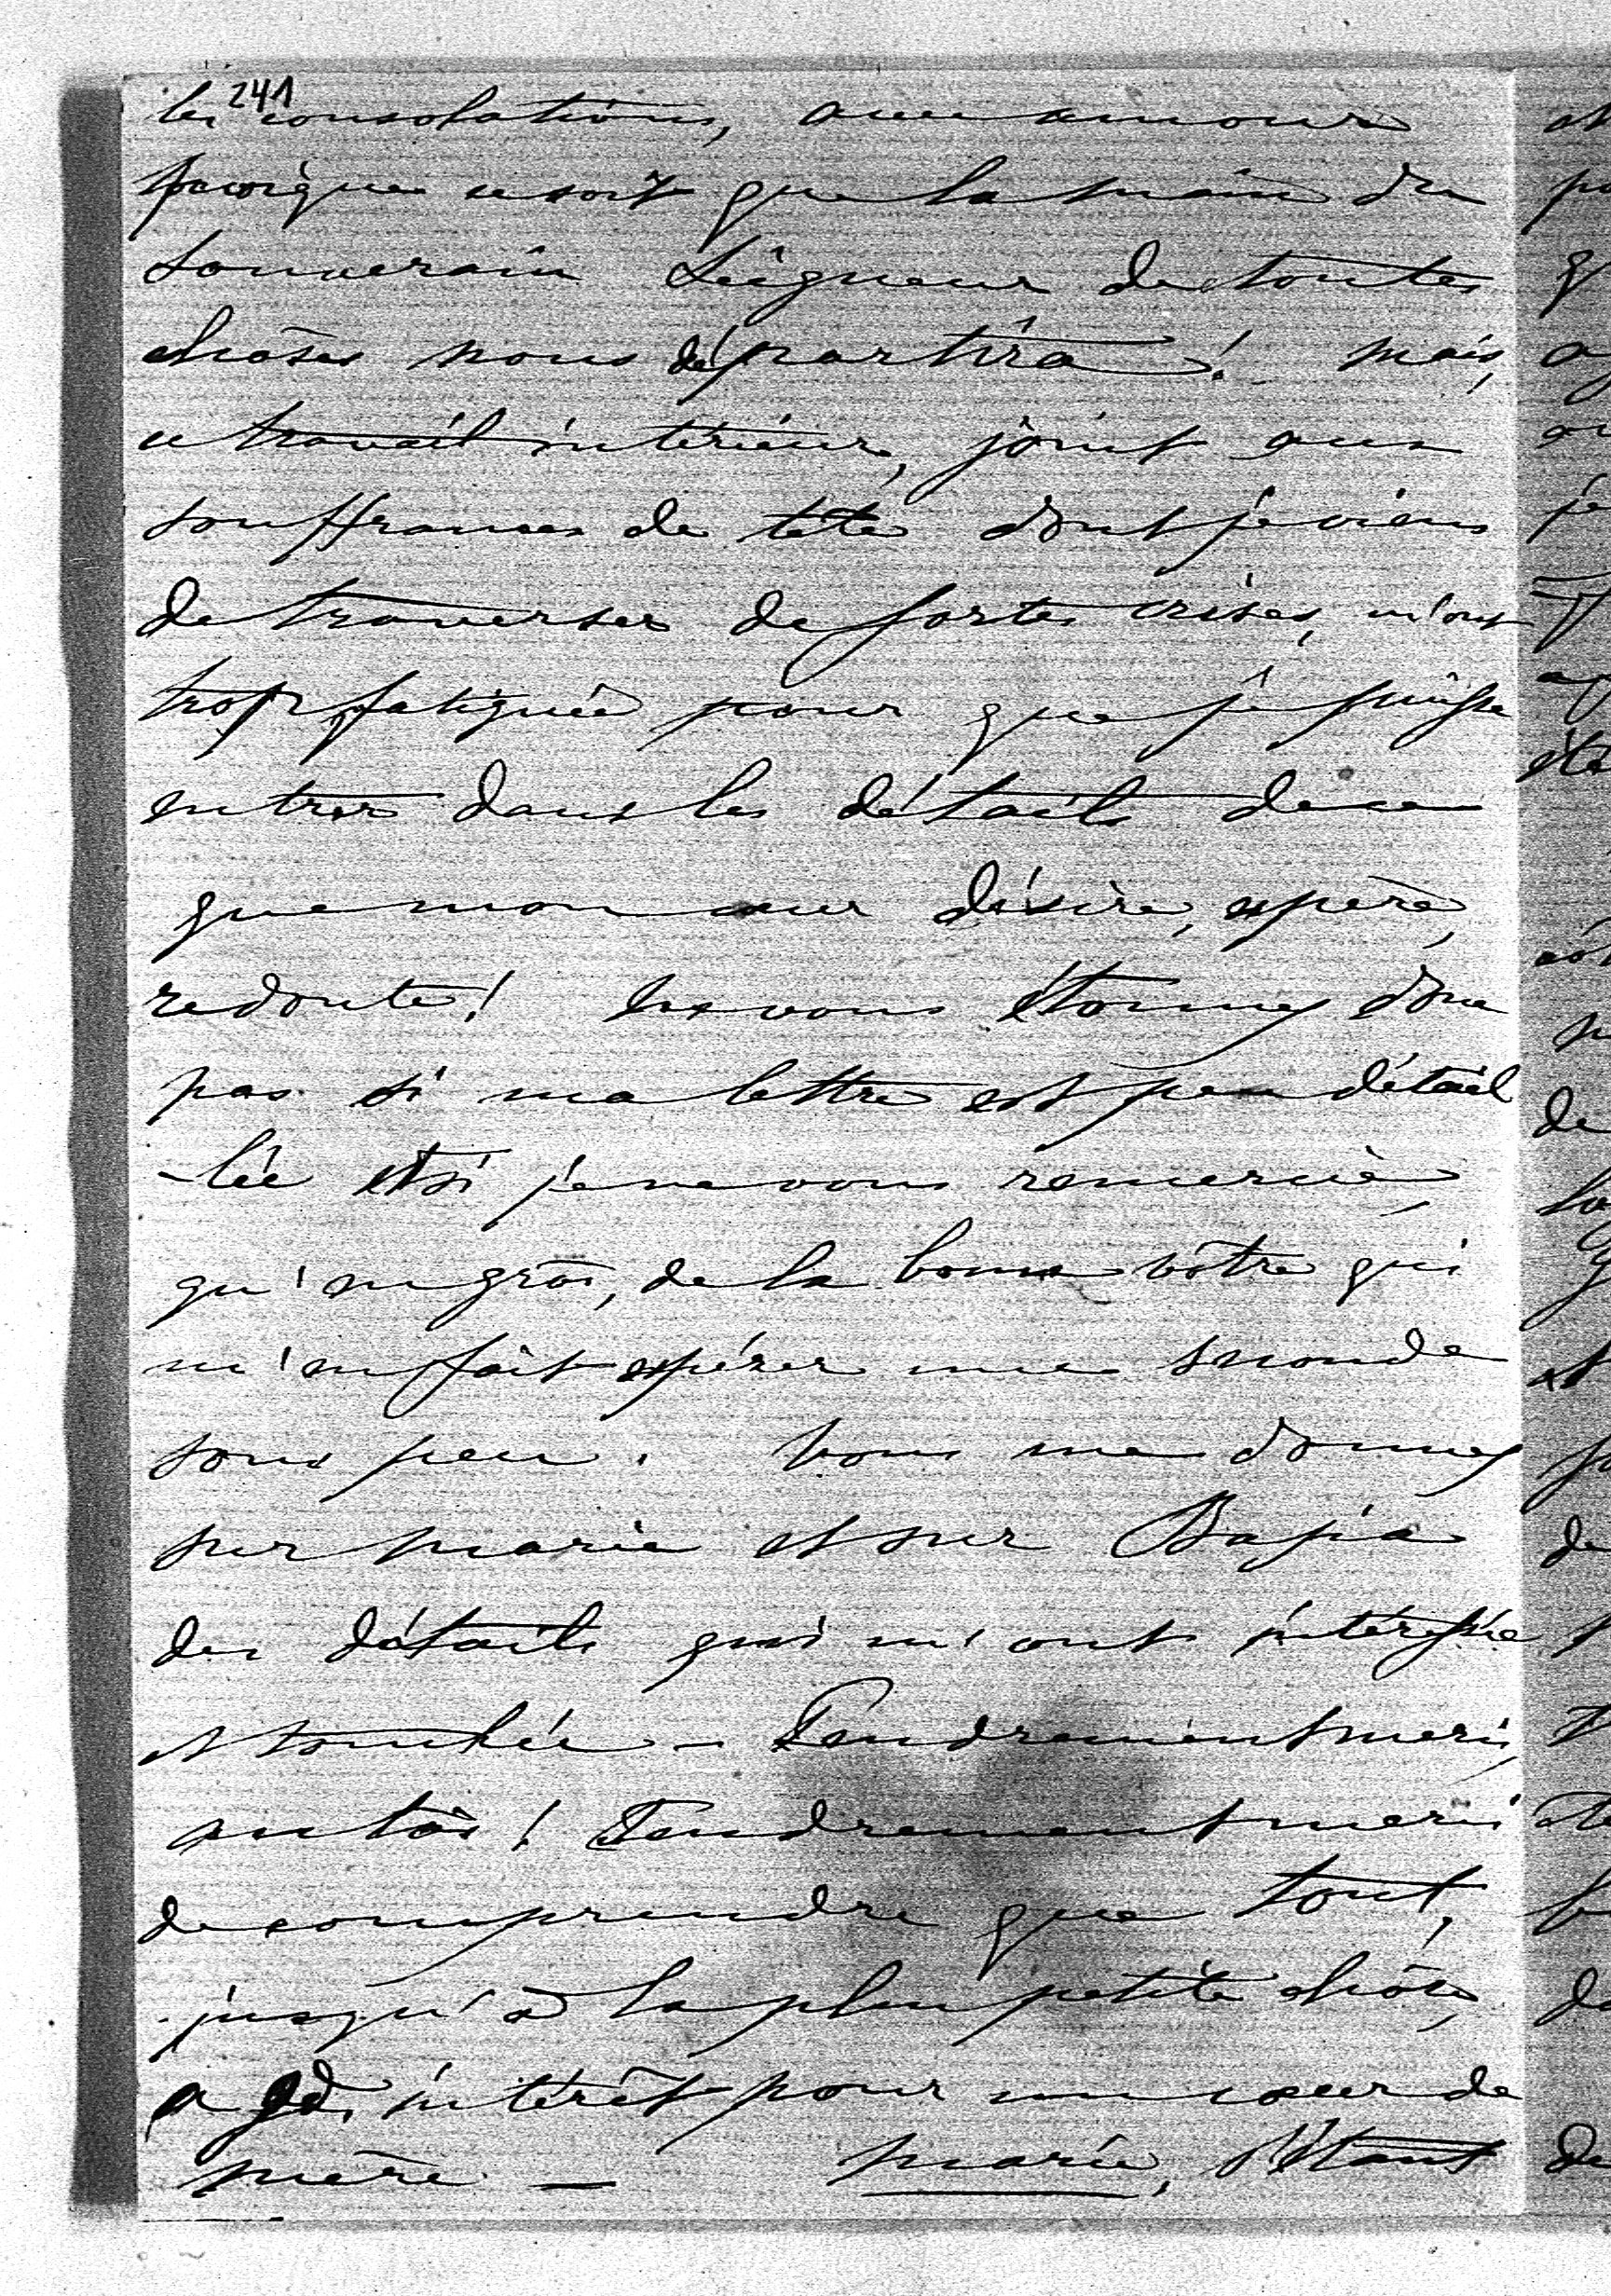 241
les consolations, avec amour
puisque ce soit que la main du
Souverain Seigneur de toutes
choses nous départira! mais,
ce travail intérieur, joint aux
souffrances de tête dont je viens
de traverser de fortes crises, m'ont
trop fatiguée pour que je puisse
entrer dans les détails de ce
que mon cœur désire, espère,
redoute! Ne vous étonnez donc
pas si ma lettre est peu détail
-lée et si je ne vous remercie,
qu'en gros, de la bonne vôtre qui
m'en fait espérer une seconde
sous peu. Vous me donnez
sur Marie et sur Bapia
des détails qui m'ont intéressée
et touchée - Tendrement merci,
Tendrement merci
de comprendre que tout,
jusqu'à la plus petite chose,
a gd. intérêt pour un cœur de
mère - Marie, s'étant